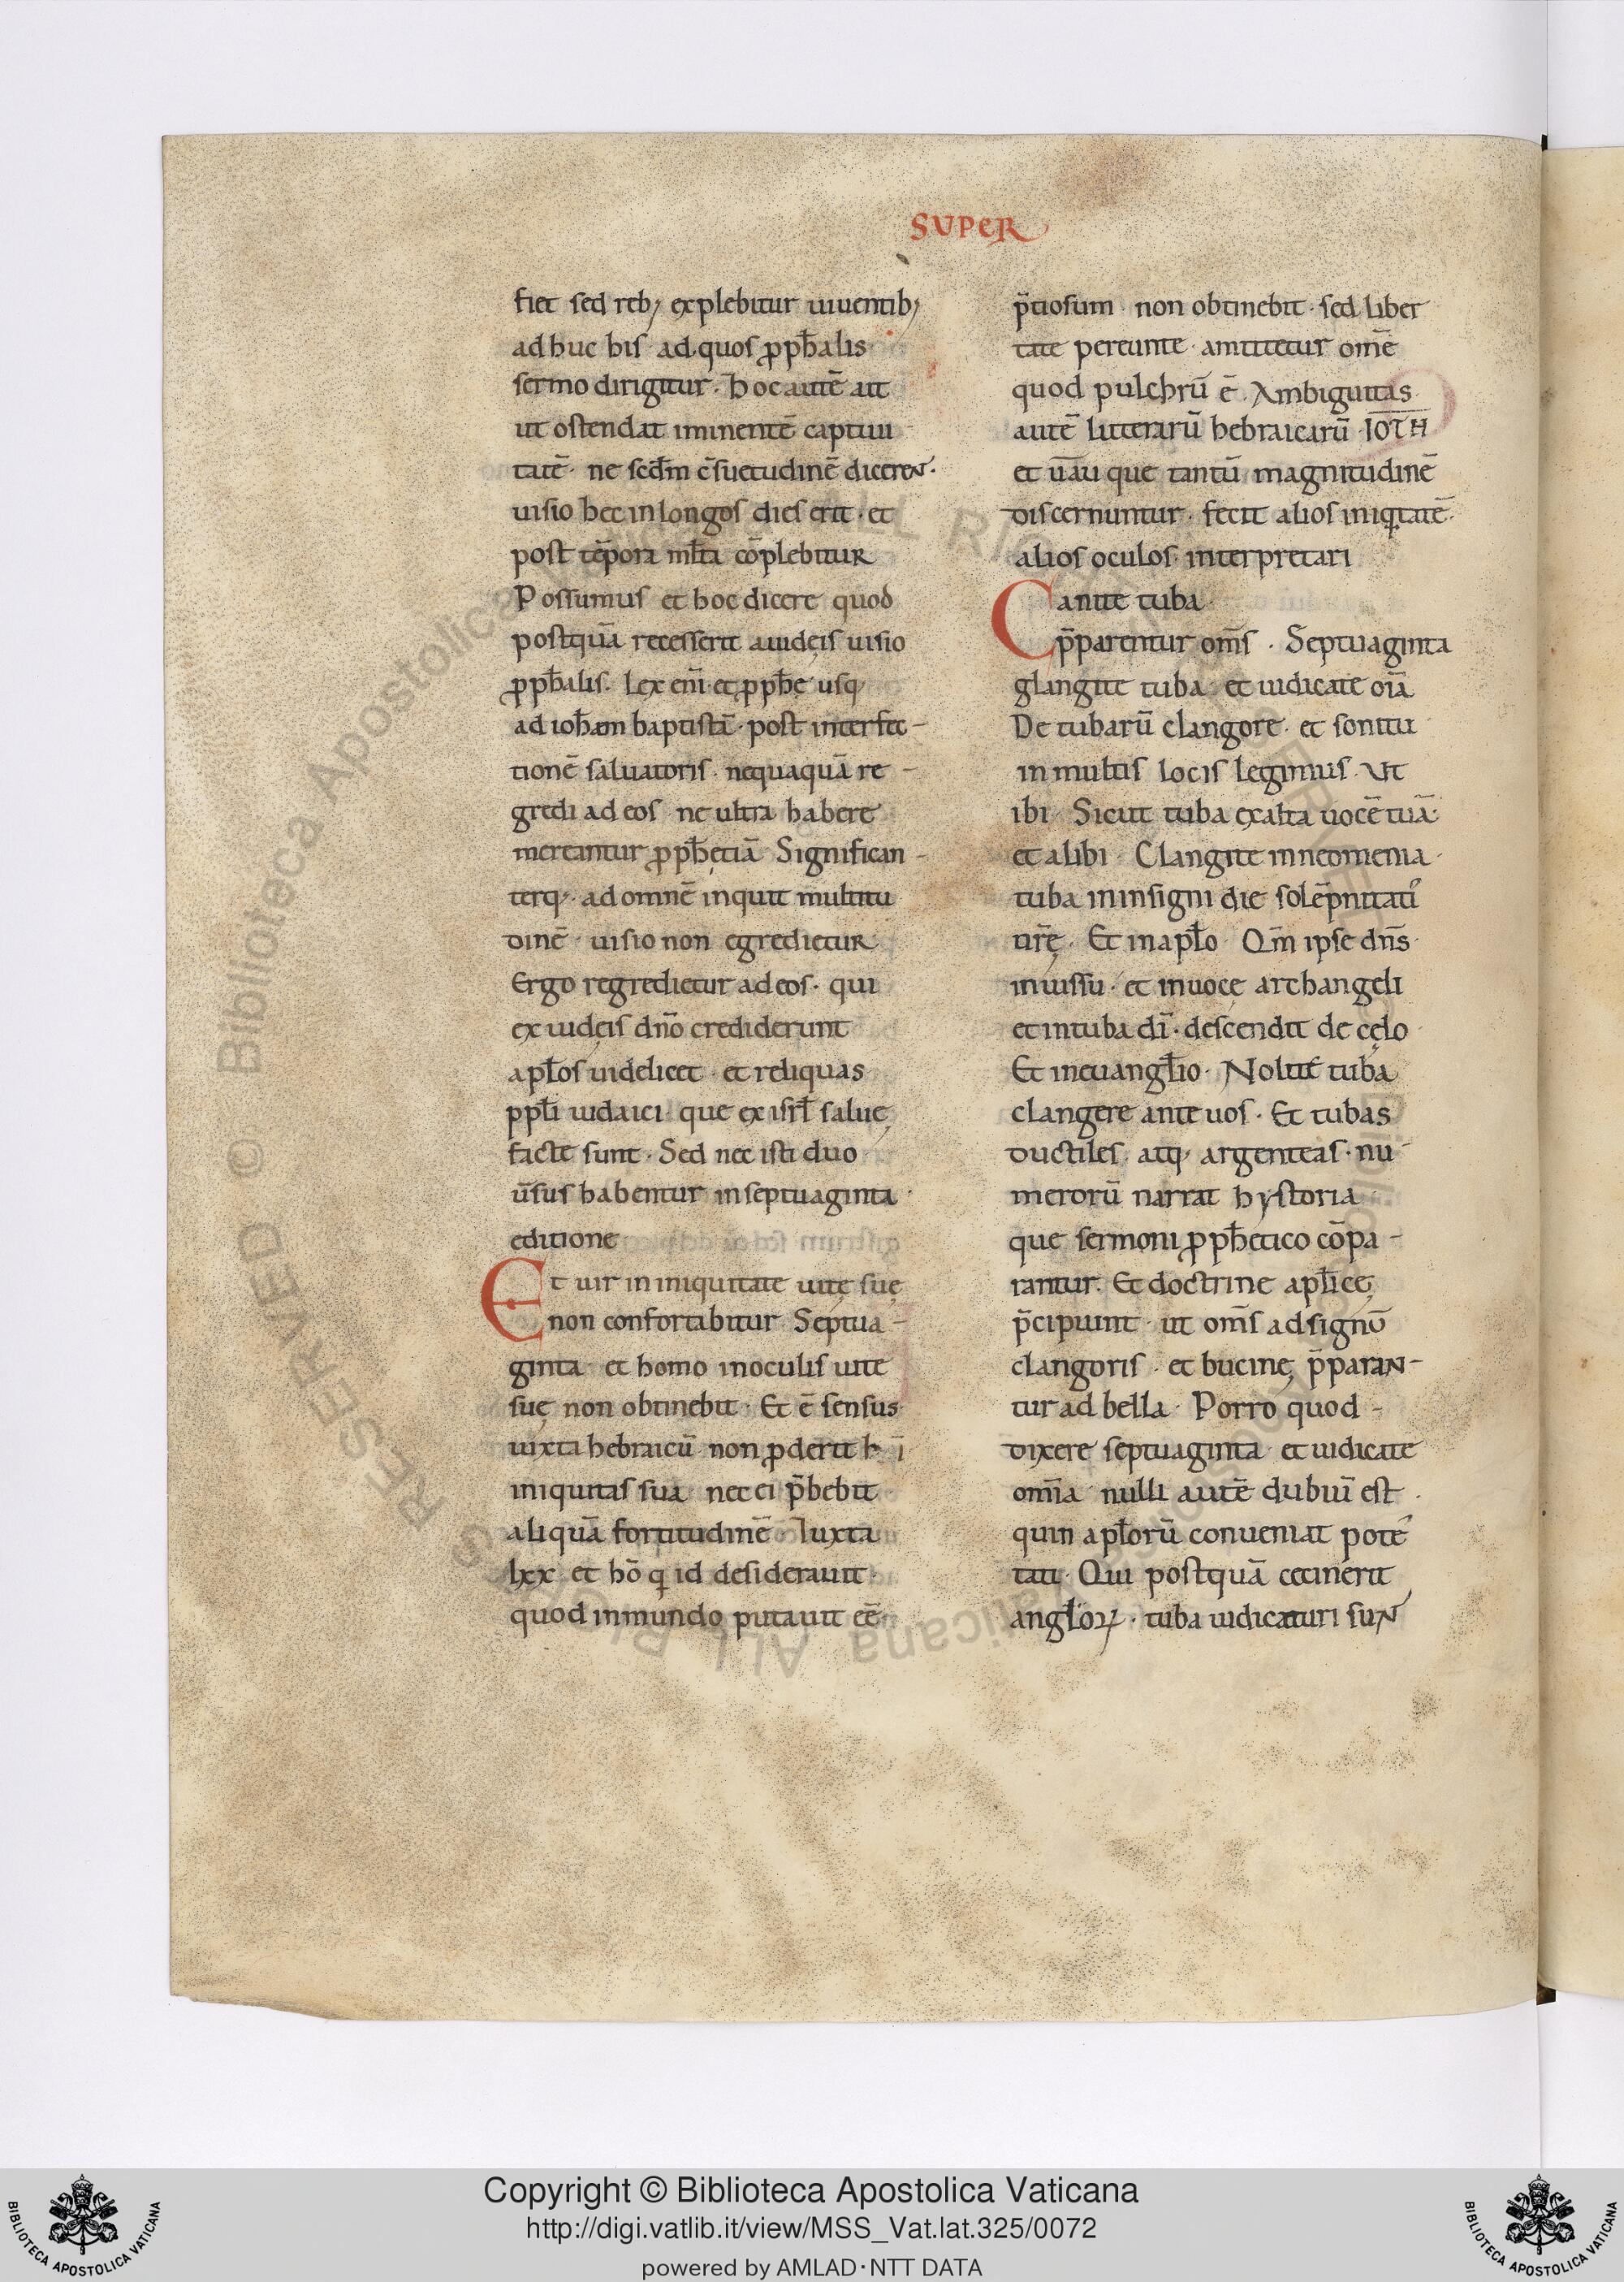 SUPER
fiet sed reb; explebitur uiuentib;
adhuc his ad quos ꝓph̄alis
sermo dirigitur. hoc autē ait
ut ostendat iminentē captiui
tatē. ne scd̄m c̄suetudinē diceren.
uisio hec in longos dies erit. et
post tēpora ml̄ta cōplebitur
Possumus et hoc dicere quod
postquā recesserit a iudęis uisio
ꝓph̄alis. Lex eni̅ et ꝓph̄ę usq;
ad ioh̄am baptistā. post interfec-
tionē saluatoris. nequaquā re-
gredi ad eos ne ultra habere
mereantur ꝓph̄ętiā Significan-
terq; ad omnē inquit multitu
dinē. uisio non egredietur
Ergo regredietur ad eos. qui
ex iudęis dn̄o crediderunt
apl̄os uidelicet. et reliquas
ppl̄i iudaici. que ex isrl̄ saluę
facte sunt. Sed nec isti duo
ūsus habentur in septuaginta
editione
Et uir in iniquitate uitę suę
non confortabitur Septua-
ginta et homo in oculis uite
suę non obtinebit. Et ē sensus
iuxta hebraicū non ꝓderit h ī
iniquitas sua nec ei p̄bebit
aliquā fortitudinē Iuxta
lxx et hō q̨ id desiderauit.
quod in mundo putauit eē
p̄tiosum non obtinebit. sed liber
tate pereunte. amittetur omē
quod pulchrū ē. Ambiguitas
autē litterarū hebraicarū IOTH
et uāu que tantū magnitudinē
discernuntur. fecit alios iniq̨tatē.
alios oculos interpretari
Canite tuba
p̄parentur om̄s. Septuaginta
glangite tuba et iudicate oīa
De tubarū clangore. et sonitu
in multis locis legimus. Ut
ibi Sicut tuba exalta uocē tuā.
et alibi Clangite in neomenia.
tuba in insigni die solēpnitati
nr̄ę. Et in apl̄o Qm̄ ipse dn̄s
in iussu. et in uocę archangeli
et in tuba dī. descendit de cęlo
Et in euangl̄io. Nolite tuba
clangere ante uos. Et tubas
ductiles. atq; argenteas. nu-
merorū narrat hystoria
que sermoni ꝓph̄etico cōpa-
rantur. Et doctrine apl̄icę
p̄cipiunt. ut om̄s ad signū
clangoris. et bucinę p̄paran-
tur ad bella. Porro quod-
dixere septuaginta et iudicate
om̄ia nulli autē dubiū est.
quin apl̄orū conueniat potē
tati. Qui postquā cecinerit
angl̄oꝝ. tuba iudicaturi sun
Copyright © Biblioteca Apostolica Vaticana
http://digi.vatlib.it/view/MSS_Vat.lat.325/0072
powered by AMLAD·NTT DATA
BIBLIOTECA APOSTOLICA VATICANA
BIBLIOTECA APOSTOLICA VATICANA